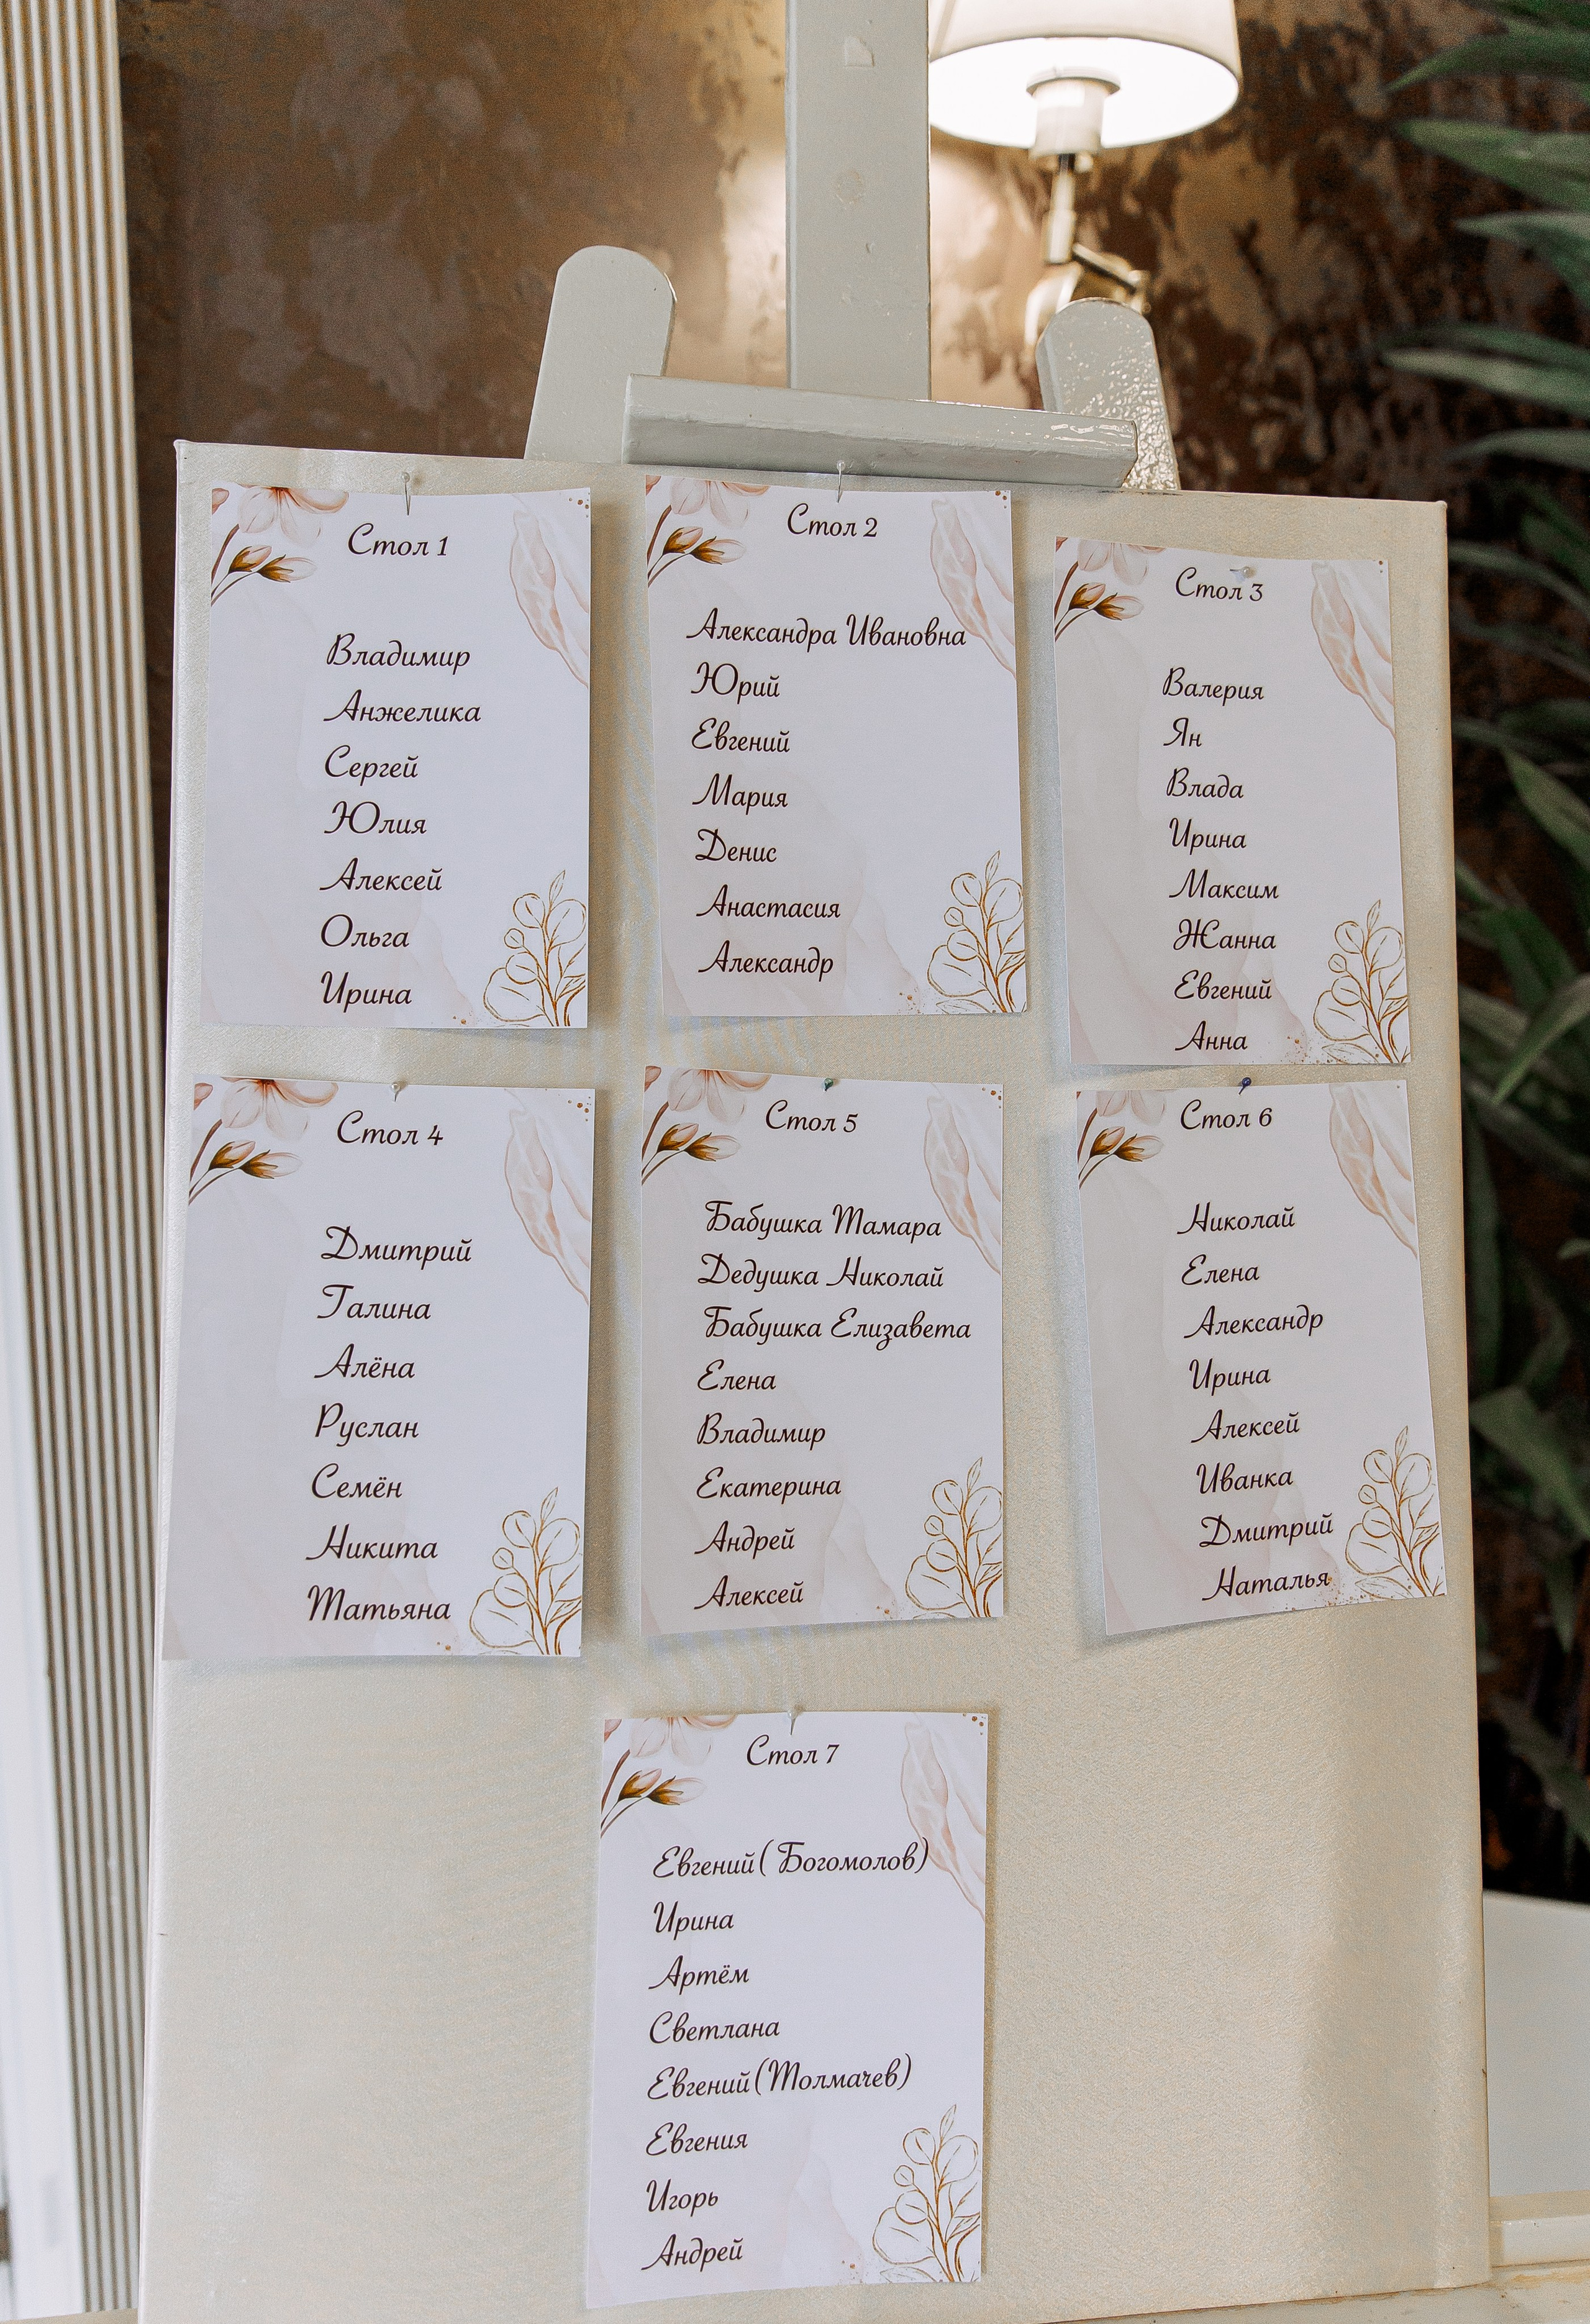 Стол 1
Владимир
Анжелика
Сергей
Юлия
Алексей
Ольга
Ирина
Стол 2
Александра Ивановна
Юрий
Евгений
Мария
Денис
Анастасия
Александр
Стол 3
Валерия
Ян
Влада
Ирина
Максим
Жанна
Евгений
Анна
Стол 4
Дмитрий
Галина
Алёна
Руслан
Семён
Никита
Татьяна
Стол 5
Бабушка Тамара
Дедушка Николай
Бабушка Елизавета
Елена
Владимир
Екатерина
Андрей
Алексей
Стол 6
Николай
Елена
Александр
Ирина
Алексей
Иванка
Дмитрий
Наталья
Стол 7
Евгений( Богомолов)
Ирина
Артём
Светлана
Евгений(Толмачев)
Евгения
Игорь
Андрей